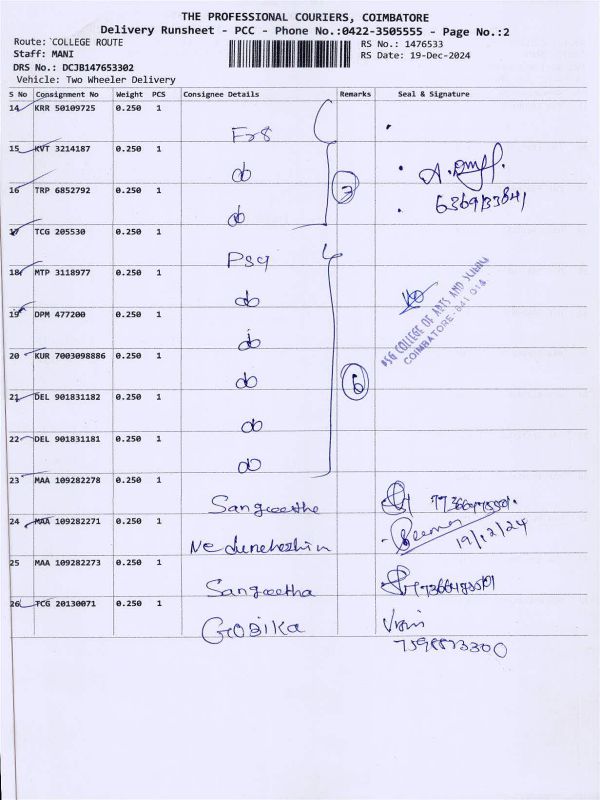 THE PROFESSIONAL COURIERS, COIMBATORE
Delivery Runsheet - PCC - Phone No.:0422-3505555 - Page No.:2
Route: COLLEGE ROUTE
RS No.: 1476533
Staff: MANI
RS Date: 19-Dec-2024
DRS No.: DCJB147653302
Vehicle: Two Wheeler Delivery
S No Consignment No Weight PCS Consignee Details Remarks Seal & Signature
14 KRR 50109725 0.250 1
15 KVT 3214187 0.250 1
do
16 TRP 6852792 0.250 1
do
17 TCG 205530 0.250 1
18 MTP 3118977 0.250 1
do
PSG COLLEGE OF ARTS AND SCIENCE
COIMBATORE - 641 014
19 DPM 477200 0.250 1
do
20 KUR 7003098886 0.250 1
do
6
21 DEL 901831182 0.250 1
do
22 DEL 901831181 0.250 1
do
23 MAA 109282278 0.250 1
Sangeetha
24 MAA 109282271 0.250 1
19/12/24
25 MAA 109282273 0.250 1
Sangeetha
26 TCG 20130071 0.250 1
GOBIKA